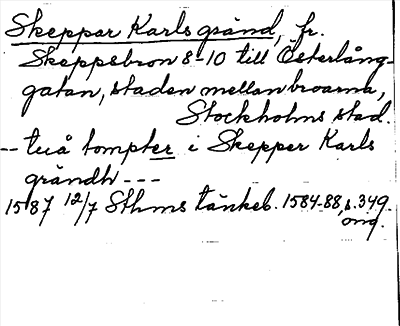 Skeppar Karls gränd, fr.
Skeppsbron 8-10 till Österlång-
gatan, staden mellan broarna,
Stockholms stad.
-- tuå tompter i Skepper Karls
grändh ---
1587 12/7 Sthms tänkeb. 1584-88, s. 349.
orig.